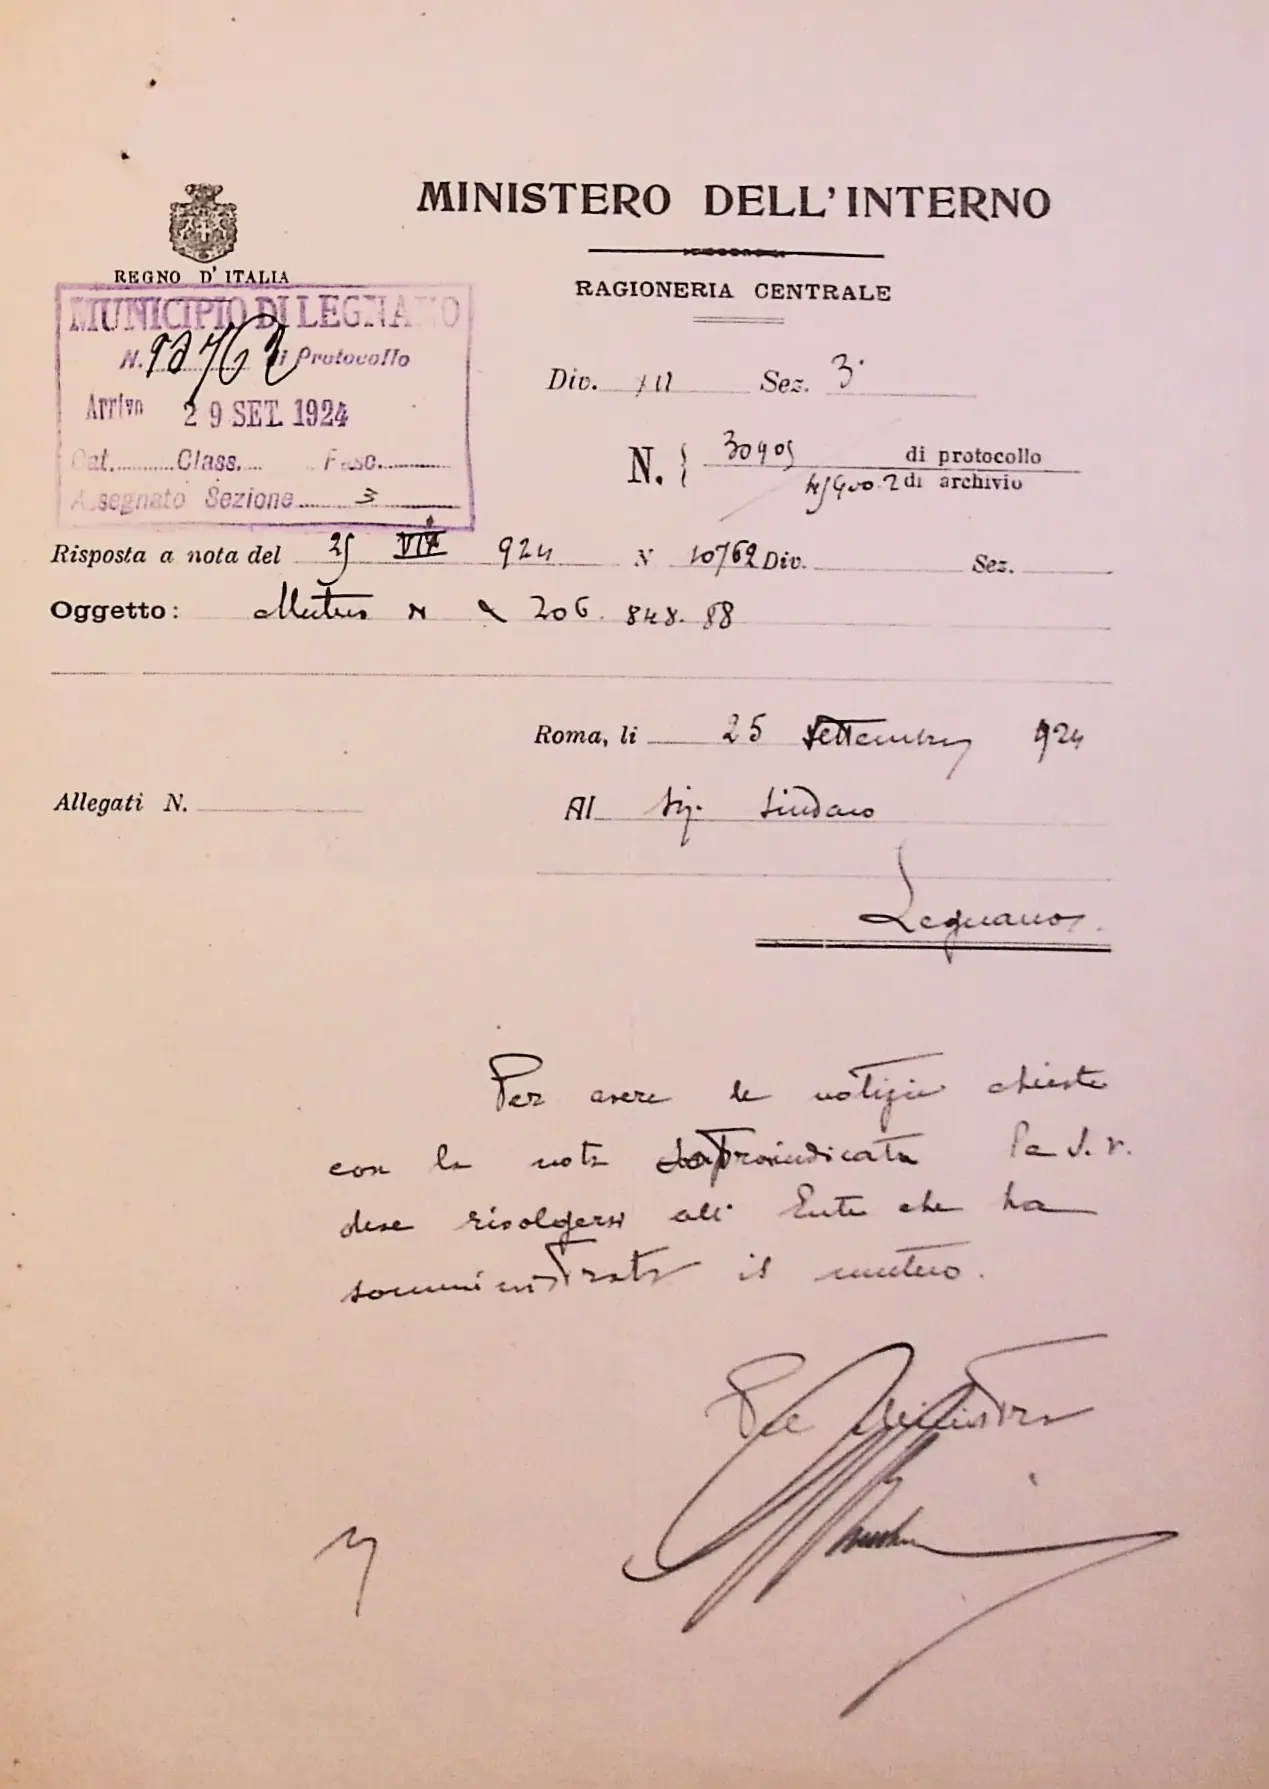 MINISTERO DELL'INTERNO
REGNO D'ITALIA
RAGIONERIA CENTRALE
MUNICIPIO DI LEGNANO
N. 10762 di Protocollo
Arrivo 29 SET. 1924
Cat. Class. Fasc.
Assegnato Sezione 3
Div. XII Sez. 3ª
N. 30905 di protocollo
di archivio
Risposta a nota del 25 924 N 10762 Div. Sez.
Oggetto: Mutuo 206.848.88
Roma, li 25 Settembre 924
Allegati N.
Al Sig. Sindaco
Legnano
Per avere le notizie chieste
con la nota sopraindicata la S.V.
deve rivolgersi all' Ente che ha
somministrato il mutuo.
Pel Ministro